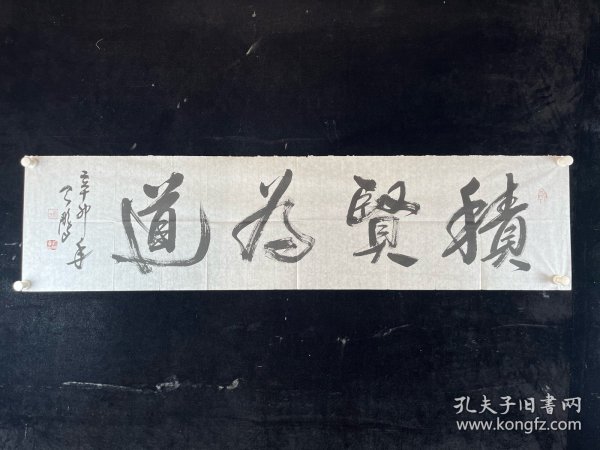 積賢為道
辛卯年
孔夫子旧書网
www.kongfz.com